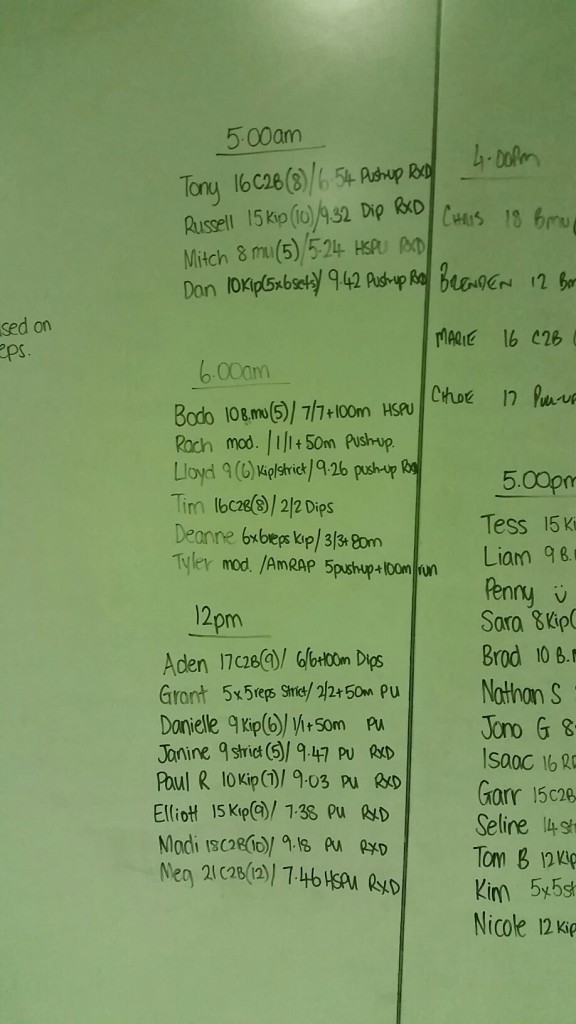 sed on
eps.
5.00am
Tony 16 C2B(8)/6.54 Push-up RXD
Russell 15 Kip (10)/9.32 Dip RXD
Mitch 8 mu(5)/5.24 HSPU RXD
Dan 10Kip(5x6sets)/ 9.42 Push-up RXD
6.00am
Bodo 10 B.mu(5)/ 7/7+100m HSPU
Rach mod. /1/1+50m Push-up.
Lloyd 9(6) Kip/strict/9.26 push-up RXD
Tim 16C2B(8)/2/2 Dips
Deanne 6x6reps Kip/3/3+80m
Tyler mod. /AMRAP 5pushup+100m run
12pm
Aden 17C2B(9)/ 6/6+100m Dips
Grant 5x5reps Strict/2/2+50m PU
Danielle 9 Kip(6)/1/1+50m PU
Janine 9 strict(5)/ 9.47 PU RXD
Paul R 10 Kip(7)/ 9.03 PU RXD
Elliott 15 Kip(9)/ 7.38 PU RXD
Madi 18C2B(10)/ 9.18 PU RXD
Meg 21 C2B(12)/ 7.46 HSPU RXD
4.00pm
CHRIS 18 Bmu(
BRENDEN 12 Bm
MARIE 16 C2B (
CHLOE 17 Pull-up
5.00pm
Tess 15 Ki
Liam 9 B.
Penny ü
Sara 8Kip(
Brad 10 B.m
Nathan S
Jono G 8
Isaac 16 R
Garr 15C2B
Seline 14 st
Tom B 12Kip
Kim 5x5st
Nicole 12 Kip